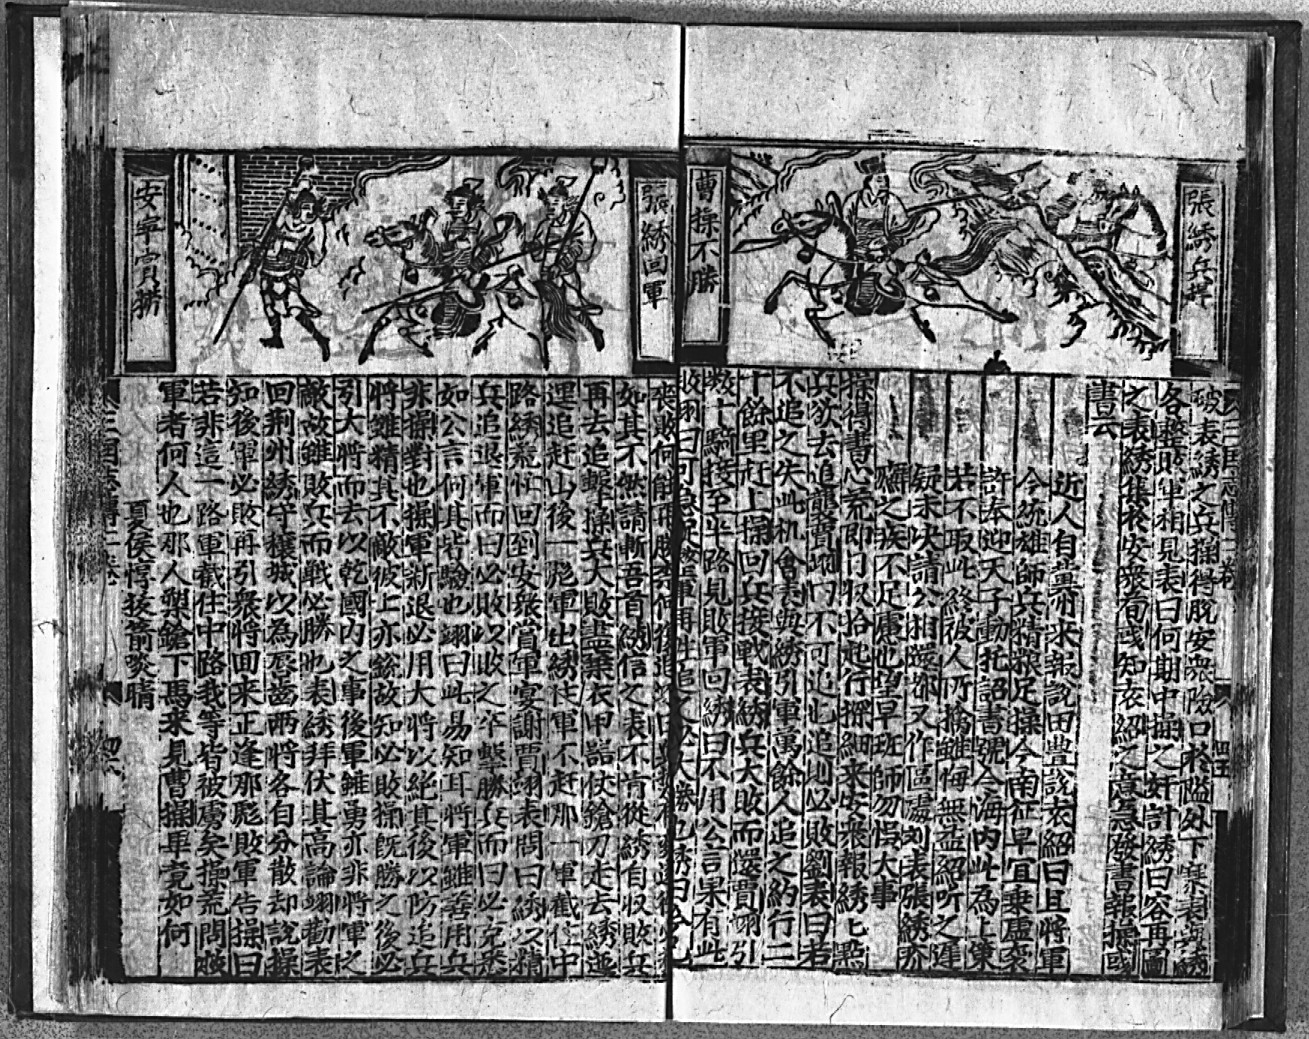 張綉兵捍
曹操不勝
破表綉之兵操得脫安衆險口於隘外下寨表與綉
各整敗軍相見表曰何期中操之奸計綉曰容再圖
之表綉集於安衆荀彧知袁紹之意急發書報操彧
書云
近人自冀州來報說田豐說袁紹曰且將軍
今統雄師兵精粮足操今南征早宜乘虛襲
許奉迎天子動托詔書號令海內此為上策
若不取此終被人所擒雖悔無益紹听之遲
疑未決請公相還都又作區處刘表張綉疥
癬之疾不足慮也望早班師勿悞大事
操得書心荒即日收拾起行探細來安衆報綉匕點
兵欲去追襲賈詡曰不可追也追則必敗劉表曰若
不追之失此机會表與綉引軍萬餘人追之約行二
十餘里赶上操回兵接戰表綉兵大敗而還賈詡引
数十騎接至半路見敗軍回綉曰不用公言果有此
敗詡曰可急促整軍再往追之必大勝也綉曰今已
張綉回軍
安宰賞將
喪敗何能再勝奈何復追
如其不然請斬吾首綉信之表不肯從綉自収敗兵
再去追擊操兵大敗盡棄衣甲噐仗鎗刀走去綉迤
逞追赶山後一彪軍出綉徃軍不赶那一軍截住中
路綉荒忙回到安衆賞軍宴謝賈詡表問曰綉以精
兵追退軍而曰必敗以敗之卒擊勝兵而曰必克悉
如公言何其皆驗也詡曰此易知耳將軍雖善用兵
非操對也操軍新退必用大將以絶其後以防追兵
將雖精其不敵彼上亦銳故知必敗操旣勝之後必
引大將而去以乾國内之事後軍雖勇亦非將軍之
敵故雖敗兵而戰必勝也表綉拜伏其高論詡勸表
回荆州綉守穰城以為唇齒兩將各自分散却說操
知後軍必敗再引衆將回来正逢那彪敗軍告操曰
若非這一路軍截住中路我等皆被虜矣操荒問啣
軍者何人也那人棨鎗下馬来見曹操畢竟如何
夏侯惇拔箭啖睛
三国志傳二卷